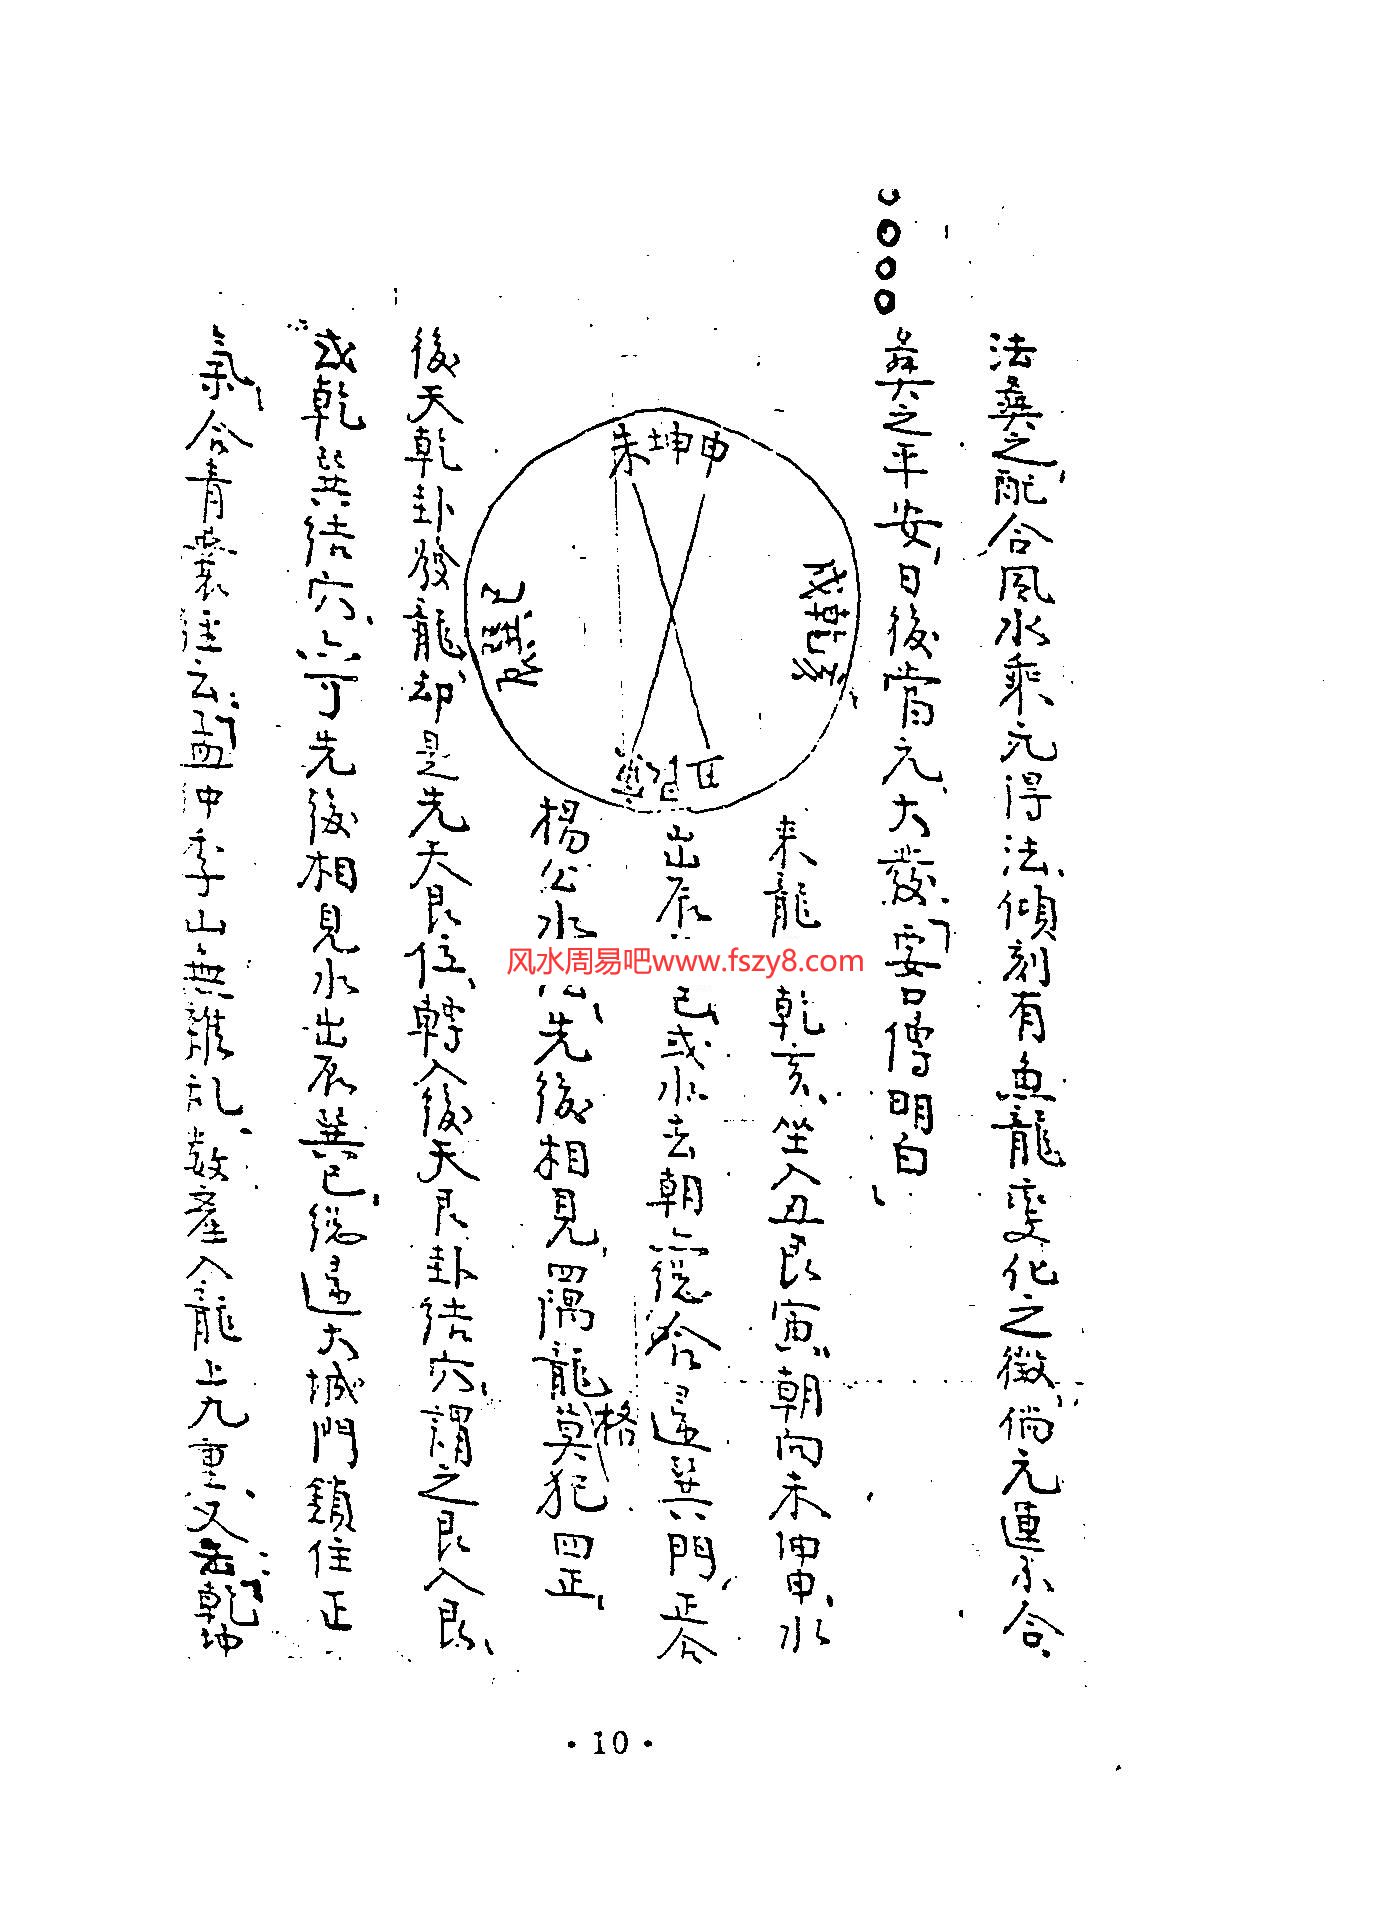 法葬之配合風水乘元得法、傾刻有魚龍變化之徵、倘元運不合、
葬之平安、日後當元、大發、要口傳明白、
未坤申
戌乾亥
丑艮寅
來龍 乾亥、坐入丑艮寅、朝向未坤申、水
出辰 巳、或水去朝亦總合歸巽門、正合
楊公水法、先後相見、四隅龍格莫犯四正、
後天乾卦發龍、却是先天艮位、轉入後天艮卦結穴、謂之艮入艮、
或乾巽結穴、亦可先後相見水出辰巽巳、總歸大城門鎖住正
氣、合青囊 云、孟仲季山無雜乱、數産入龍上九重、又 乾坤
风水周易吧www.fszy8.com
·10·